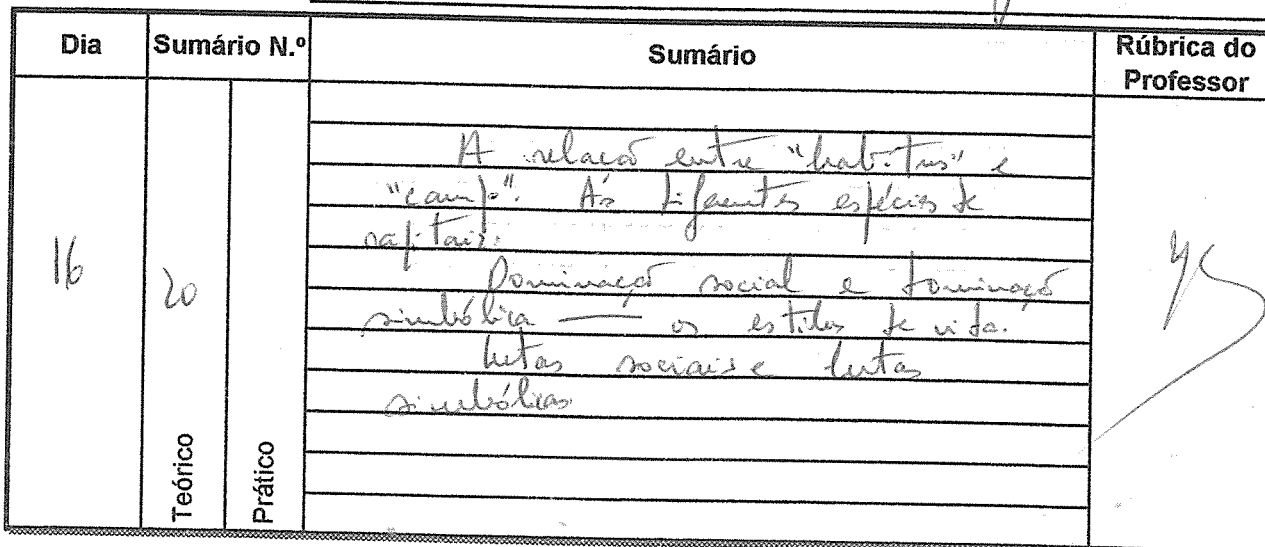 Dia Sumário N.º Sumário Rúbrica do Professor
A relação entre "habitus" e
"campo". As diferentes espécies de
capitais.
16 20 Dominação social e dominação
simbólica — os estilos de vida.
Lutas sociais e lutas
simbólicas
Teórico Prático